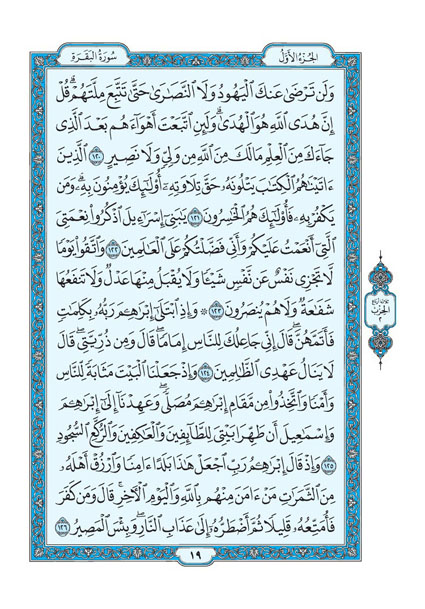 الجزء الأول
سورة البقرة
وَلَن تَرْضَىٰ عَنكَ ٱلْيَهُودُ وَلَا ٱلنَّصَٰرَىٰ حَتَّىٰ تَتَّبِعَ مِلَّتَهُمْ ۗ قُلْ
إِنَّ هُدَى ٱللَّهِ هُوَ ٱلْهُدَىٰ ۗ وَلَئِنِ ٱتَّبَعْتَ أَهْوَآءَهُم بَعْدَ ٱلَّذِى
جَآءَكَ مِنَ ٱلْعِلْمِ مَا لَكَ مِنَ ٱللَّهِ مِن وَلِىٍّ وَلَا نَصِيرٍ ١٢٠ ٱلَّذِينَ
ءَاتَيْنَٰهُمُ ٱلْكِتَٰبَ يَتْلُونَهُۥ حَقَّ تِلَاوَتِهِۦٓ أُو۟لَٰٓئِكَ يُؤْمِنُونَ بِهِۦ ۗ وَمَن
يَكْفُرْ بِهِۦ فَأُو۟لَٰٓئِكَ هُمُ ٱلْخَٰسِرُونَ ١٢١ يَٰبَنِىٓ إِسْرَٰٓءِيلَ ٱذْكُرُوا۟ نِعْمَتِىَ
ٱلَّتِىٓ أَنْعَمْتُ عَلَيْكُمْ وَأَنِّى فَضَّلْتُكُمْ عَلَى ٱلْعَٰلَمِينَ ١٢٢ وَٱتَّقُوا۟ يَوْمًا
لَّا تَجْزِى نَفْسٌ عَن نَّفْسٍ شَيْـًٔا وَلَا يُقْبَلُ مِنْهَا عَدْلٌ وَلَا تَنفَعُهَا
شَفَٰعَةٌ وَلَا هُمْ يُنصَرُونَ ١٢٣ ۞ وَإِذِ ٱبْتَلَىٰٓ إِبْرَٰهِـۧمَ رَبُّهُۥ بِكَلِمَٰتٍ
فَأَتَمَّهُنَّ ۖ قَالَ إِنِّى جَاعِلُكَ لِلنَّاسِ إِمَامًا ۖ قَالَ وَمِن ذُرِّيَّتِى ۖ قَالَ
لَا يَنَالُ عَهْدِى ٱلظَّٰلِمِينَ ١٢٤ وَإِذْ جَعَلْنَا ٱلْبَيْتَ مَثَابَةً لِّلنَّاسِ
وَأَمْنًا وَٱتَّخِذُوا۟ مِن مَّقَامِ إِبْرَٰهِـۧمَ مُصَلًّى ۖ وَعَهِدْنَآ إِلَىٰٓ إِبْرَٰهِـۧمَ
وَإِسْمَٰعِيلَ أَن طَهِّرَا بَيْتِىَ لِلطَّآئِفِينَ وَٱلْعَٰكِفِينَ وَٱلرُّكَّعِ ٱلسُّجُودِ
١٢٥ وَإِذْ قَالَ إِبْرَٰهِـۧمُ رَبِّ ٱجْعَلْ هَٰذَا بَلَدًا ءَامِنًا وَٱرْزُقْ أَهْلَهُۥ
مِنَ ٱلثَّمَرَٰتِ مَنْ ءَامَنَ مِنْهُم بِٱللَّهِ وَٱلْيَوْمِ ٱلْءَاخِرِ ۖ قَالَ وَمَن كَفَرَ
فَأُمَتِّعُهُۥ قَلِيلًا ثُمَّ أَضْطَرُّهُۥٓ إِلَىٰ عَذَابِ ٱلنَّارِ ۖ وَبِئْسَ ٱلْمَصِيرُ ١٢٦
ثلاثة أرباع
الحزب
٢
١٩